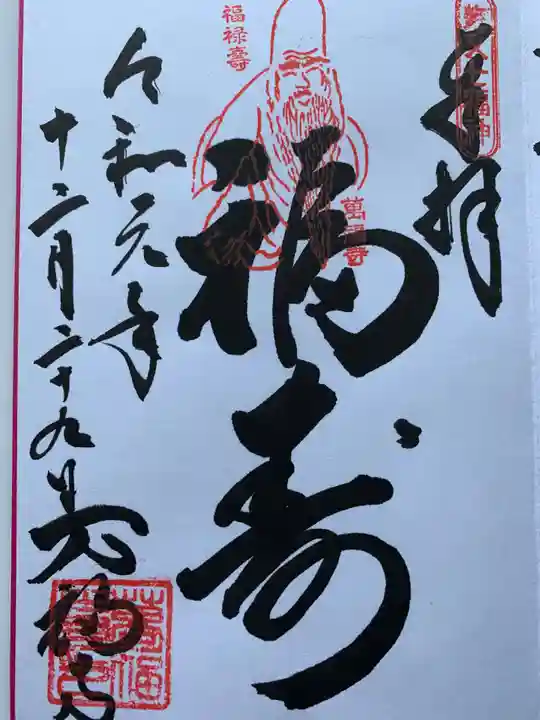 奉拝
福寿
福禄壽
令和元年
十二月二十九日
萬福寺